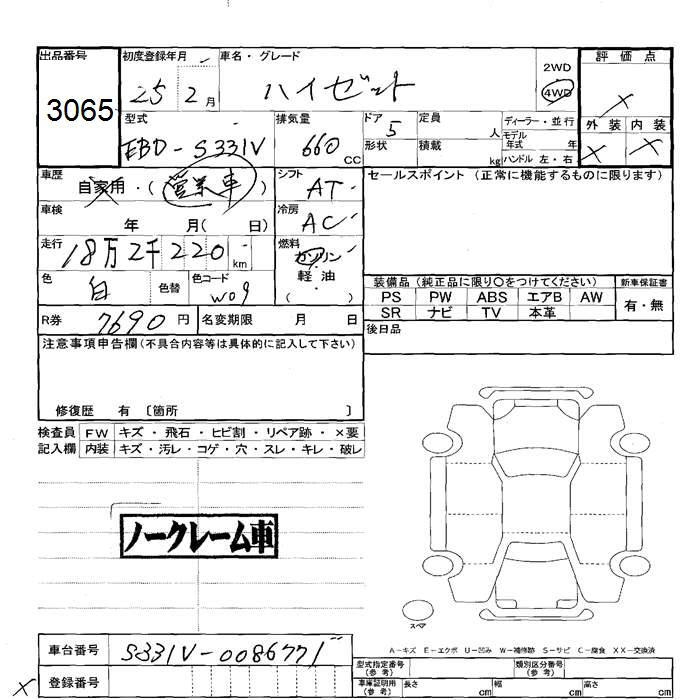 出品番号 初度登録年月 車名・グレード 2WD 評価点
3065 25 2月 ハイゼット 4WD X
型式 排気量 ドア 定員 ディーラー・並行 外装 内装
EBD-S331V 660 CC 5 人 モデル年式 年 X X
形状 積載 kg ハンドル 左・右
車歴 自家用・(営業車) シフト AT セールスポイント(正常に機能するものに限ります)
車検 年 月( 日) 冷房 AC
走行 18万2千220km 燃料 ガソリン
色 白 色替 色コード W09 軽油
( )
装備品(純正品に限り○をつけてください) 新車保証書
PS PW ABS エアB AW 有・無
SR ナビ TV 本革
R券 7690円 名変期限 月 日
後日品
注意事項申告欄(不具合内容等は具体的に記入して下さい)
修復歴 有 〔箇所 〕
検査員 FW キズ・飛石・ヒビ割・リペア跡・×要
記入欄 内装 キズ・汚レ・コゲ・穴・スレ・キレ・破レ
ノークレーム車
スペア
A-キズ E-エクボ U-凹み W-補修跡 S-サビ C-腐食 XX-交換済
車台番号 S331V-0086771
型式指定番号(参考) 類別区分番号(参考)
登録番号
車庫証明用(参考) 長さ cm 幅 cm 高さ cm
X